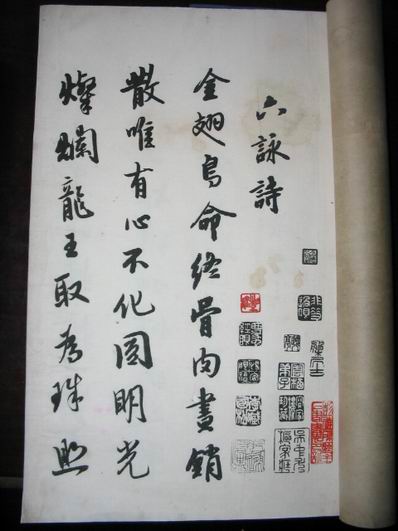 六詠詩
金翅鳥命終骨肉盡銷
散唯有心不化圓明光
燦爛龍王取為珠照